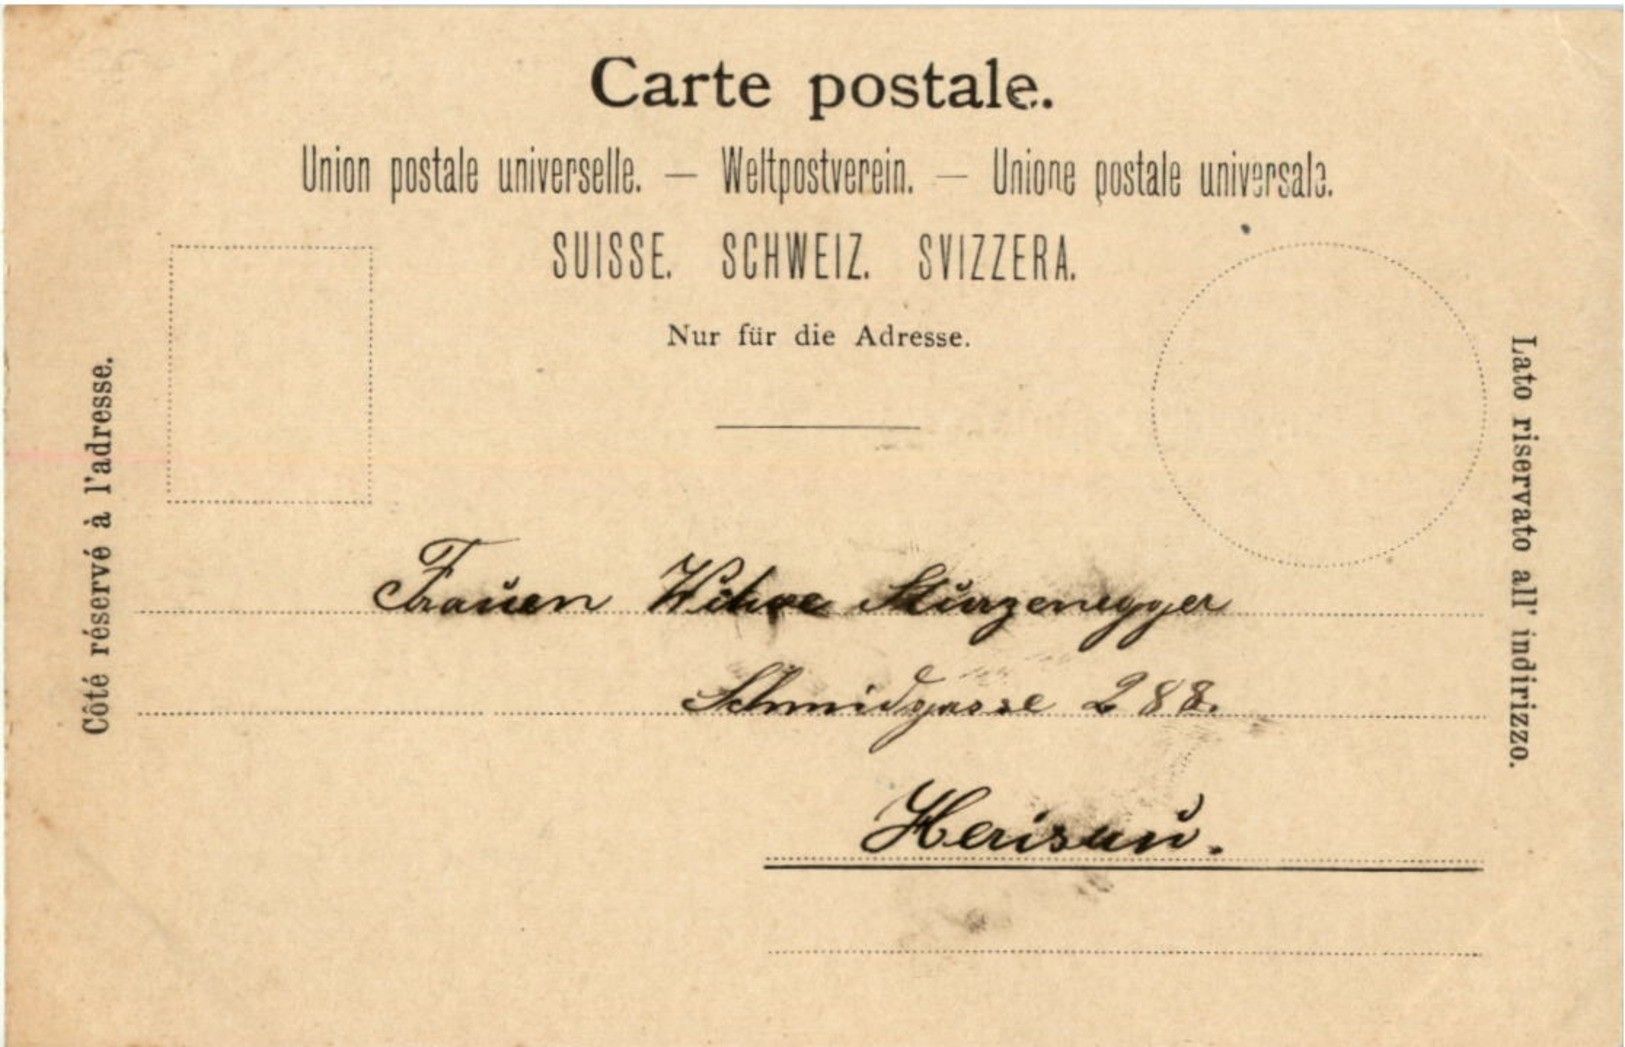 Carte postale.
Union postale universelle. — Weltpostverein. — Unione postale universale.
SUISSE. SCHWEIZ. SVIZZERA.
Nur für die Adresse.
Côté réservé à l'adresse.
Lato riservato all' indirizzo.
Frauen
Schmidgasse 288.
Herisau.